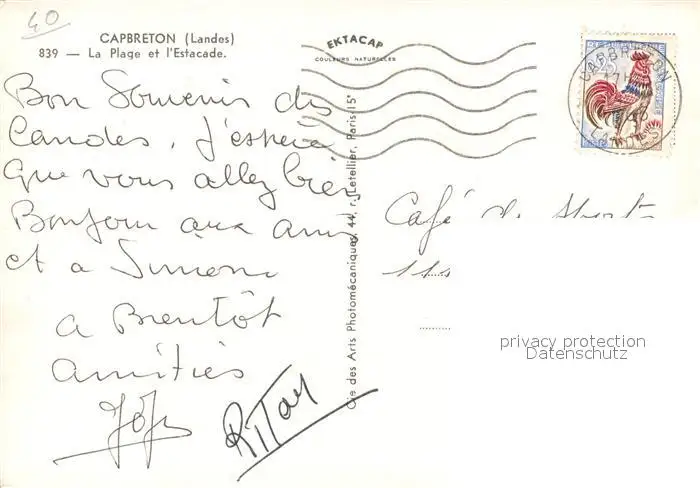 40
CAPBRETON (Landes)
839 — La Plage et l'Estacade.
EKTACAP
COULEURS NATURELLES
Bon Souvenir des
Landes. J'espère
Que vous allez bien
Bonjour aux amis
et a Simone
a Bientôt
amitiés
Cie des Arts Photomécaniques, 44, r. Letellier, Paris 15e
Café de
privacy protection
Datenschutz